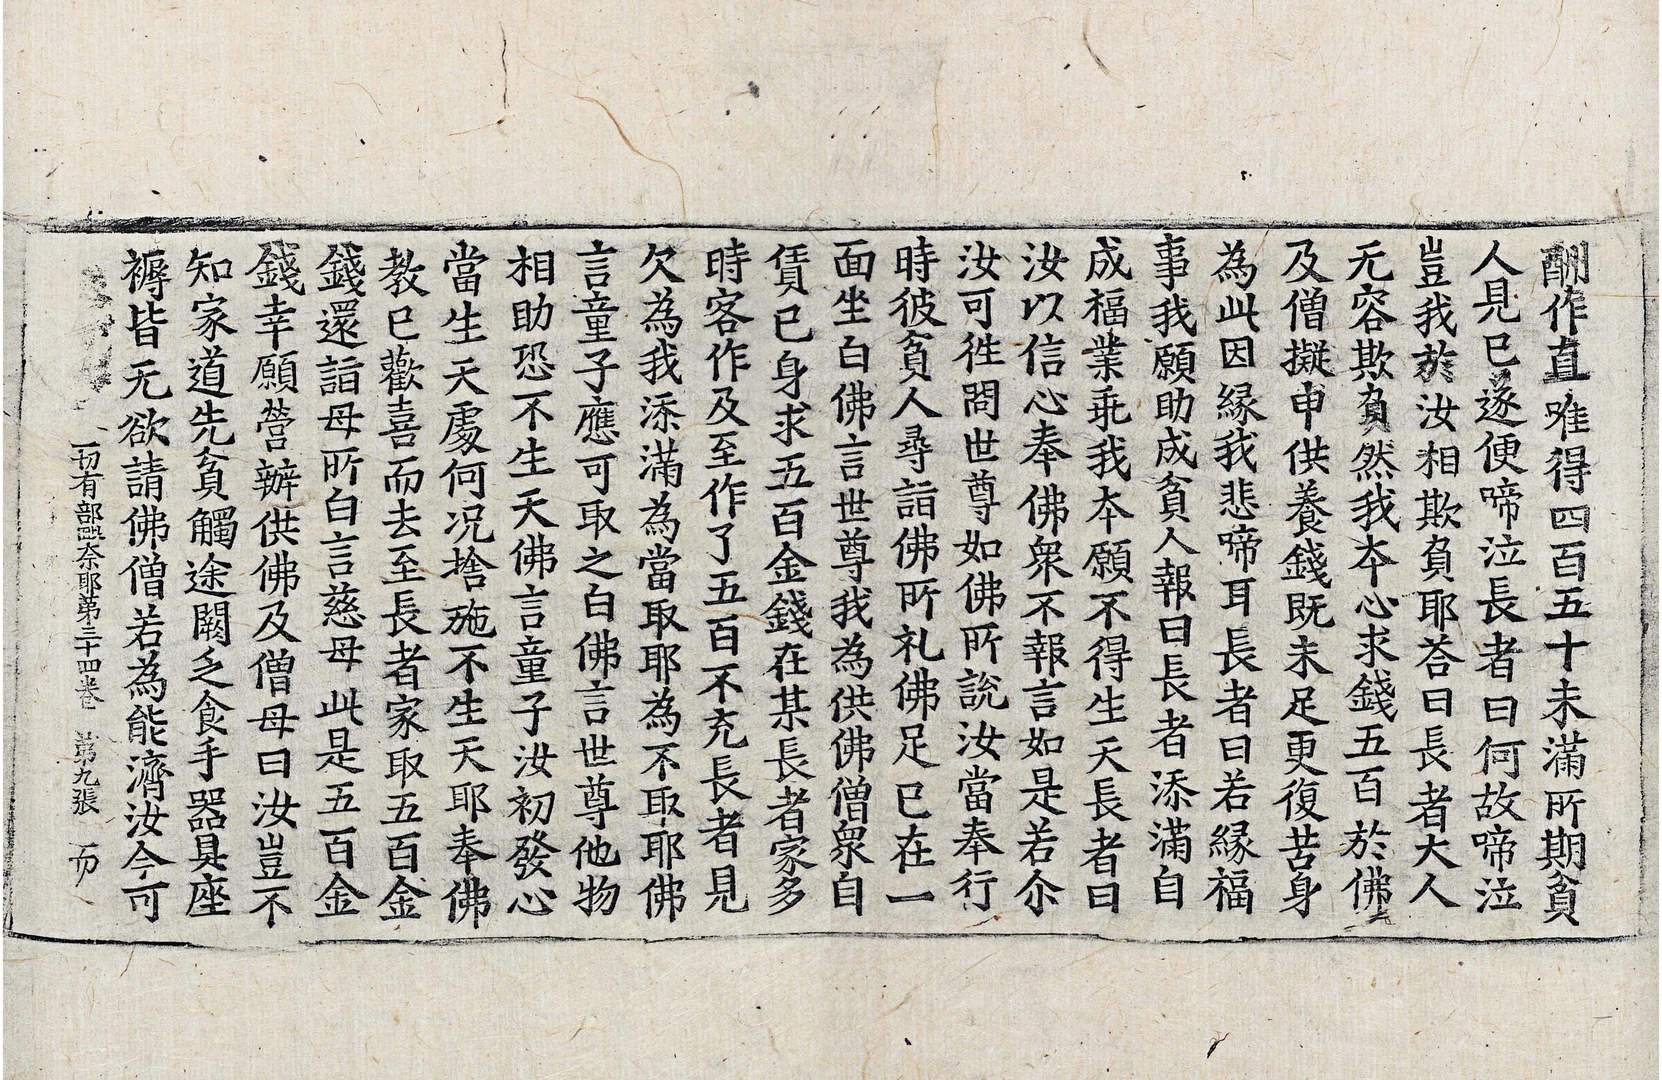 酬作直唯得四百五十未滿所期貧
人見已遂便啼泣長者曰何故啼泣
豈我於汝相欺負耶荅曰長者大人
无容欺負然我本心求錢五百於佛
及僧擬申供養錢既未足更復苦身
為此因緣我悲啼耳長者曰若緣福
事我願助成貧人報曰長者添滿自
成福業乖我本願不得生天長者曰
汝以信心奉佛衆不報言如是若尒
汝可徃問世尊如佛所說汝當奉行
時彼貧人尋詣佛所礼佛足已在一
面坐白佛言世尊我為供佛僧衆自
賃已身求五百金錢在某長者家多
時客作及至作了五百不充長者見
欠為我添滿為當取耶為不取耶佛
言童子應可取之白佛言世尊他物
相助恐不生天佛言童子汝初發心
當生天處何况捨施不生天耶奉佛
教已歡喜而去至長者家取五百金
錢還詣母所白言慈母此是五百金
錢幸願營辦供佛及僧母曰汝豈不
知家道先貧觸途闕乏食手器具座
褥皆无欲請佛僧若為能濟汝今可
一切有部毗奈耶第三十四卷 第九張 而